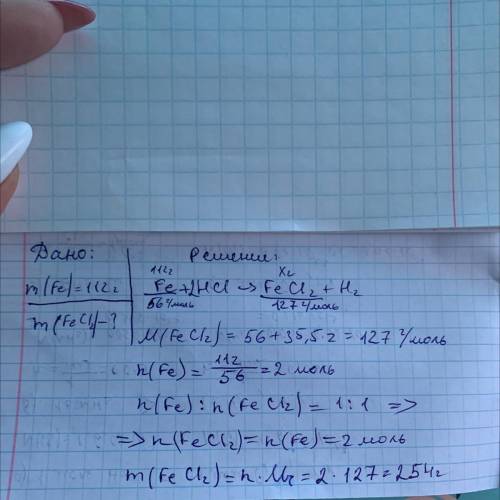 Дано:
Решение:
m(Fe)=112г
m(FeCl2)-?
112г Xг
Fe+2HCl→FeCl2+H2
56г/моль 127г/моль
M(FeCl2)=56+35,5·2=127г/моль
n(Fe)=112/56=2 моль
n(Fe):n(FeCl2)=1:1 =>
=>n(FeCl2)=n(Fe)=2 моль
m(FeCl2)=n·Mr=2·127=254г